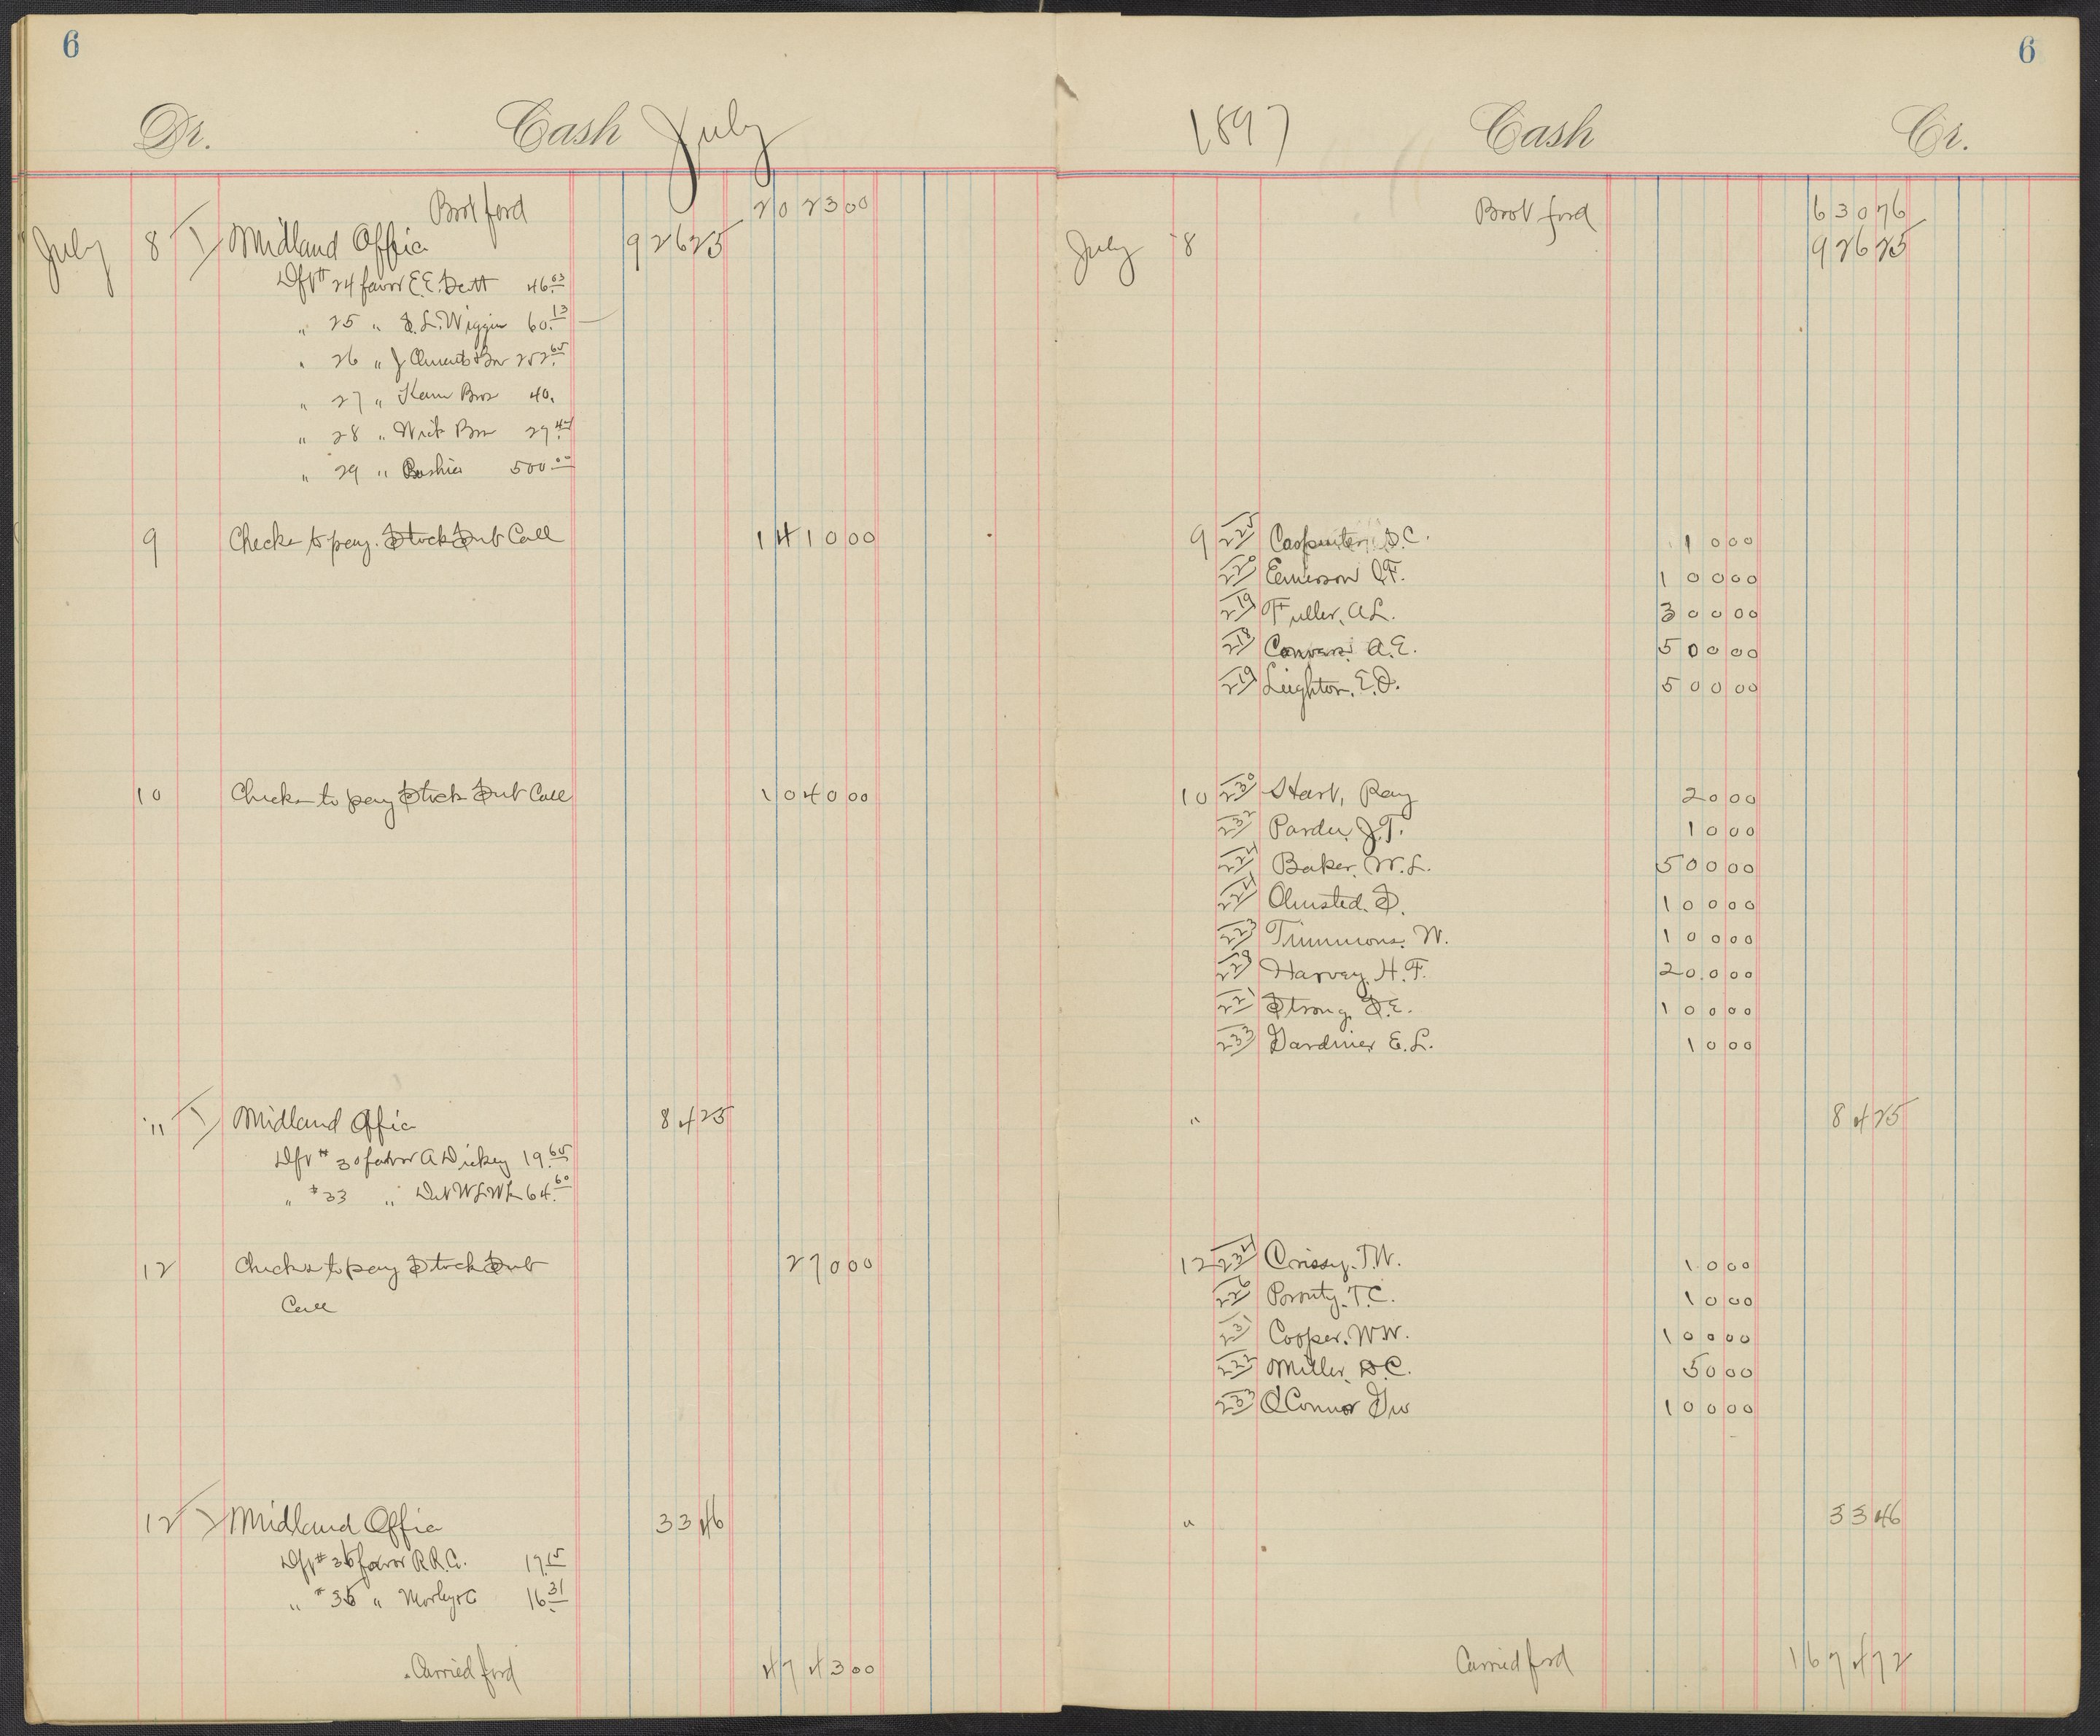 6
Dr. Cash July
Brot ford 2023 00
July 8 Midland Office 926 25
Dft # 24 favor E.E. 46.03
" 25 " S.L. Wiggin 60.13
" 26 " J Clements & Bro 252.65
" 27 " Bros 40.
" 28 " Bros 27.44
" 29 " Cashier 500.00
9 Checks to pay. Stock Sub Call 1410 00
10 Checks to pay Stock Sub Call 1040 00
" Midland Office 84 25
Dft # 30 favor A Dickey 19.65
" # 33 " 64.60
12 Checks to pay Stock Sub 270 00
Call
12 Midland Office 33 46
Dft # 36 favor R.R.Co. 17.15
" # 35 " Morley & Co 16.31
Carried ford 4743 00
6
1897 Cash Cr.
Brot ford 630 76
July 8 926 25
9 225 Carpenter, S.C. 10 00
220 Emerson, C.F. 100 00
219 Fuller, A.L. 300 00
218 Convers, A.E. 500 00
219 Leighton, E.O. 500 00
10 230 Start, Ray 20 00
232 Pardee, J.T. 10 00
224 Baker, W.L. 500 00
224 Olmsted, S. 100 00
223 Timmons, W. 100 00
229 Harvey, H.F. 200 00
221 Strong, S.E. 100 00
233 Gardiner, E.L. 10 00
" 84 25
12 234 Crissy, T.W. 10 00
226 Prouty, T.C. 10 00
231 Cooper, W.W. 100 00
222 Miller, D.C. 50 00
233 O'Connor Geo 100 00
" 33 46
Carried ford 1674 72